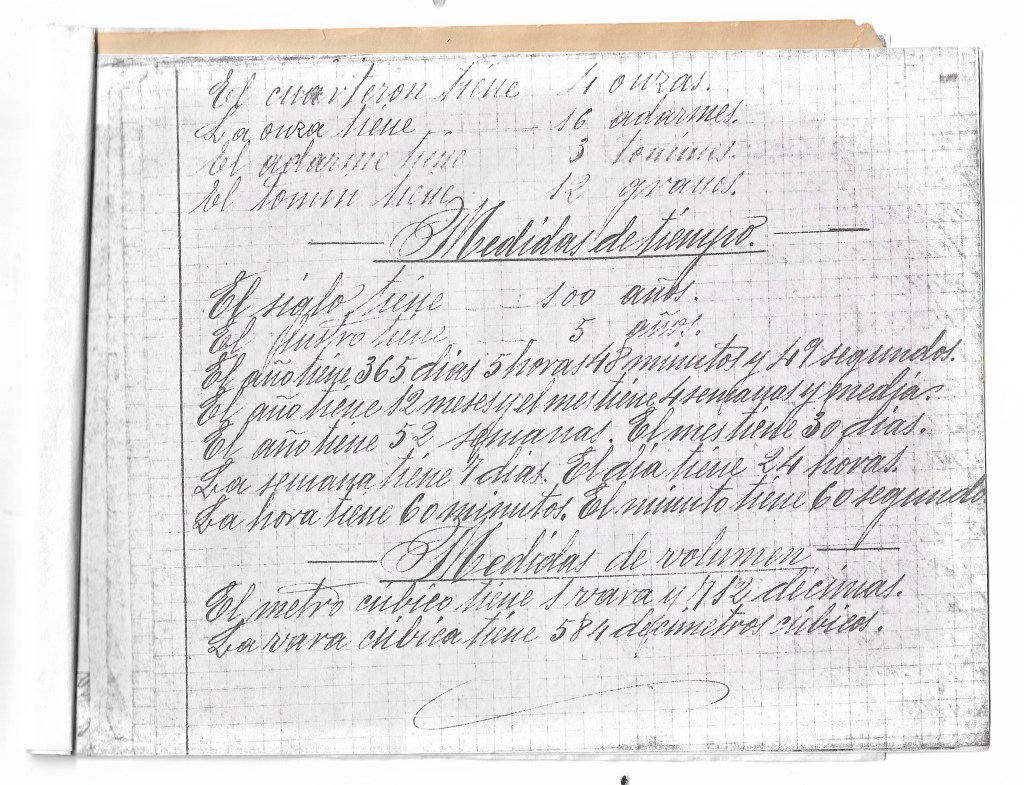 El cuarteron tiene 4 onzas.
La onza tiene 16 adarmes.
El adarme tiene 3 tomines.
El tomin tiene 12 granos.
Medidas de tiempo.
El siglo tiene 100 años.
El lustro tiene 5 años.
El año tiene 365 dias 5 horas 48 minutos y 49 segundos.
El año tiene 12 meses y el mes tiene 4 semanas y media.
El año tiene 52 semanas. El mes tiene 30 dias.
La semana tiene 7 dias. El dia tiene 24 horas.
La hora tiene 60 minutos. El minuto tiene 60 segundo
Medidas de volumen
El metro cubico tiene 1 vara y 712 decimas.
La vara cúbica tiene 584 decimetros cúbicos.